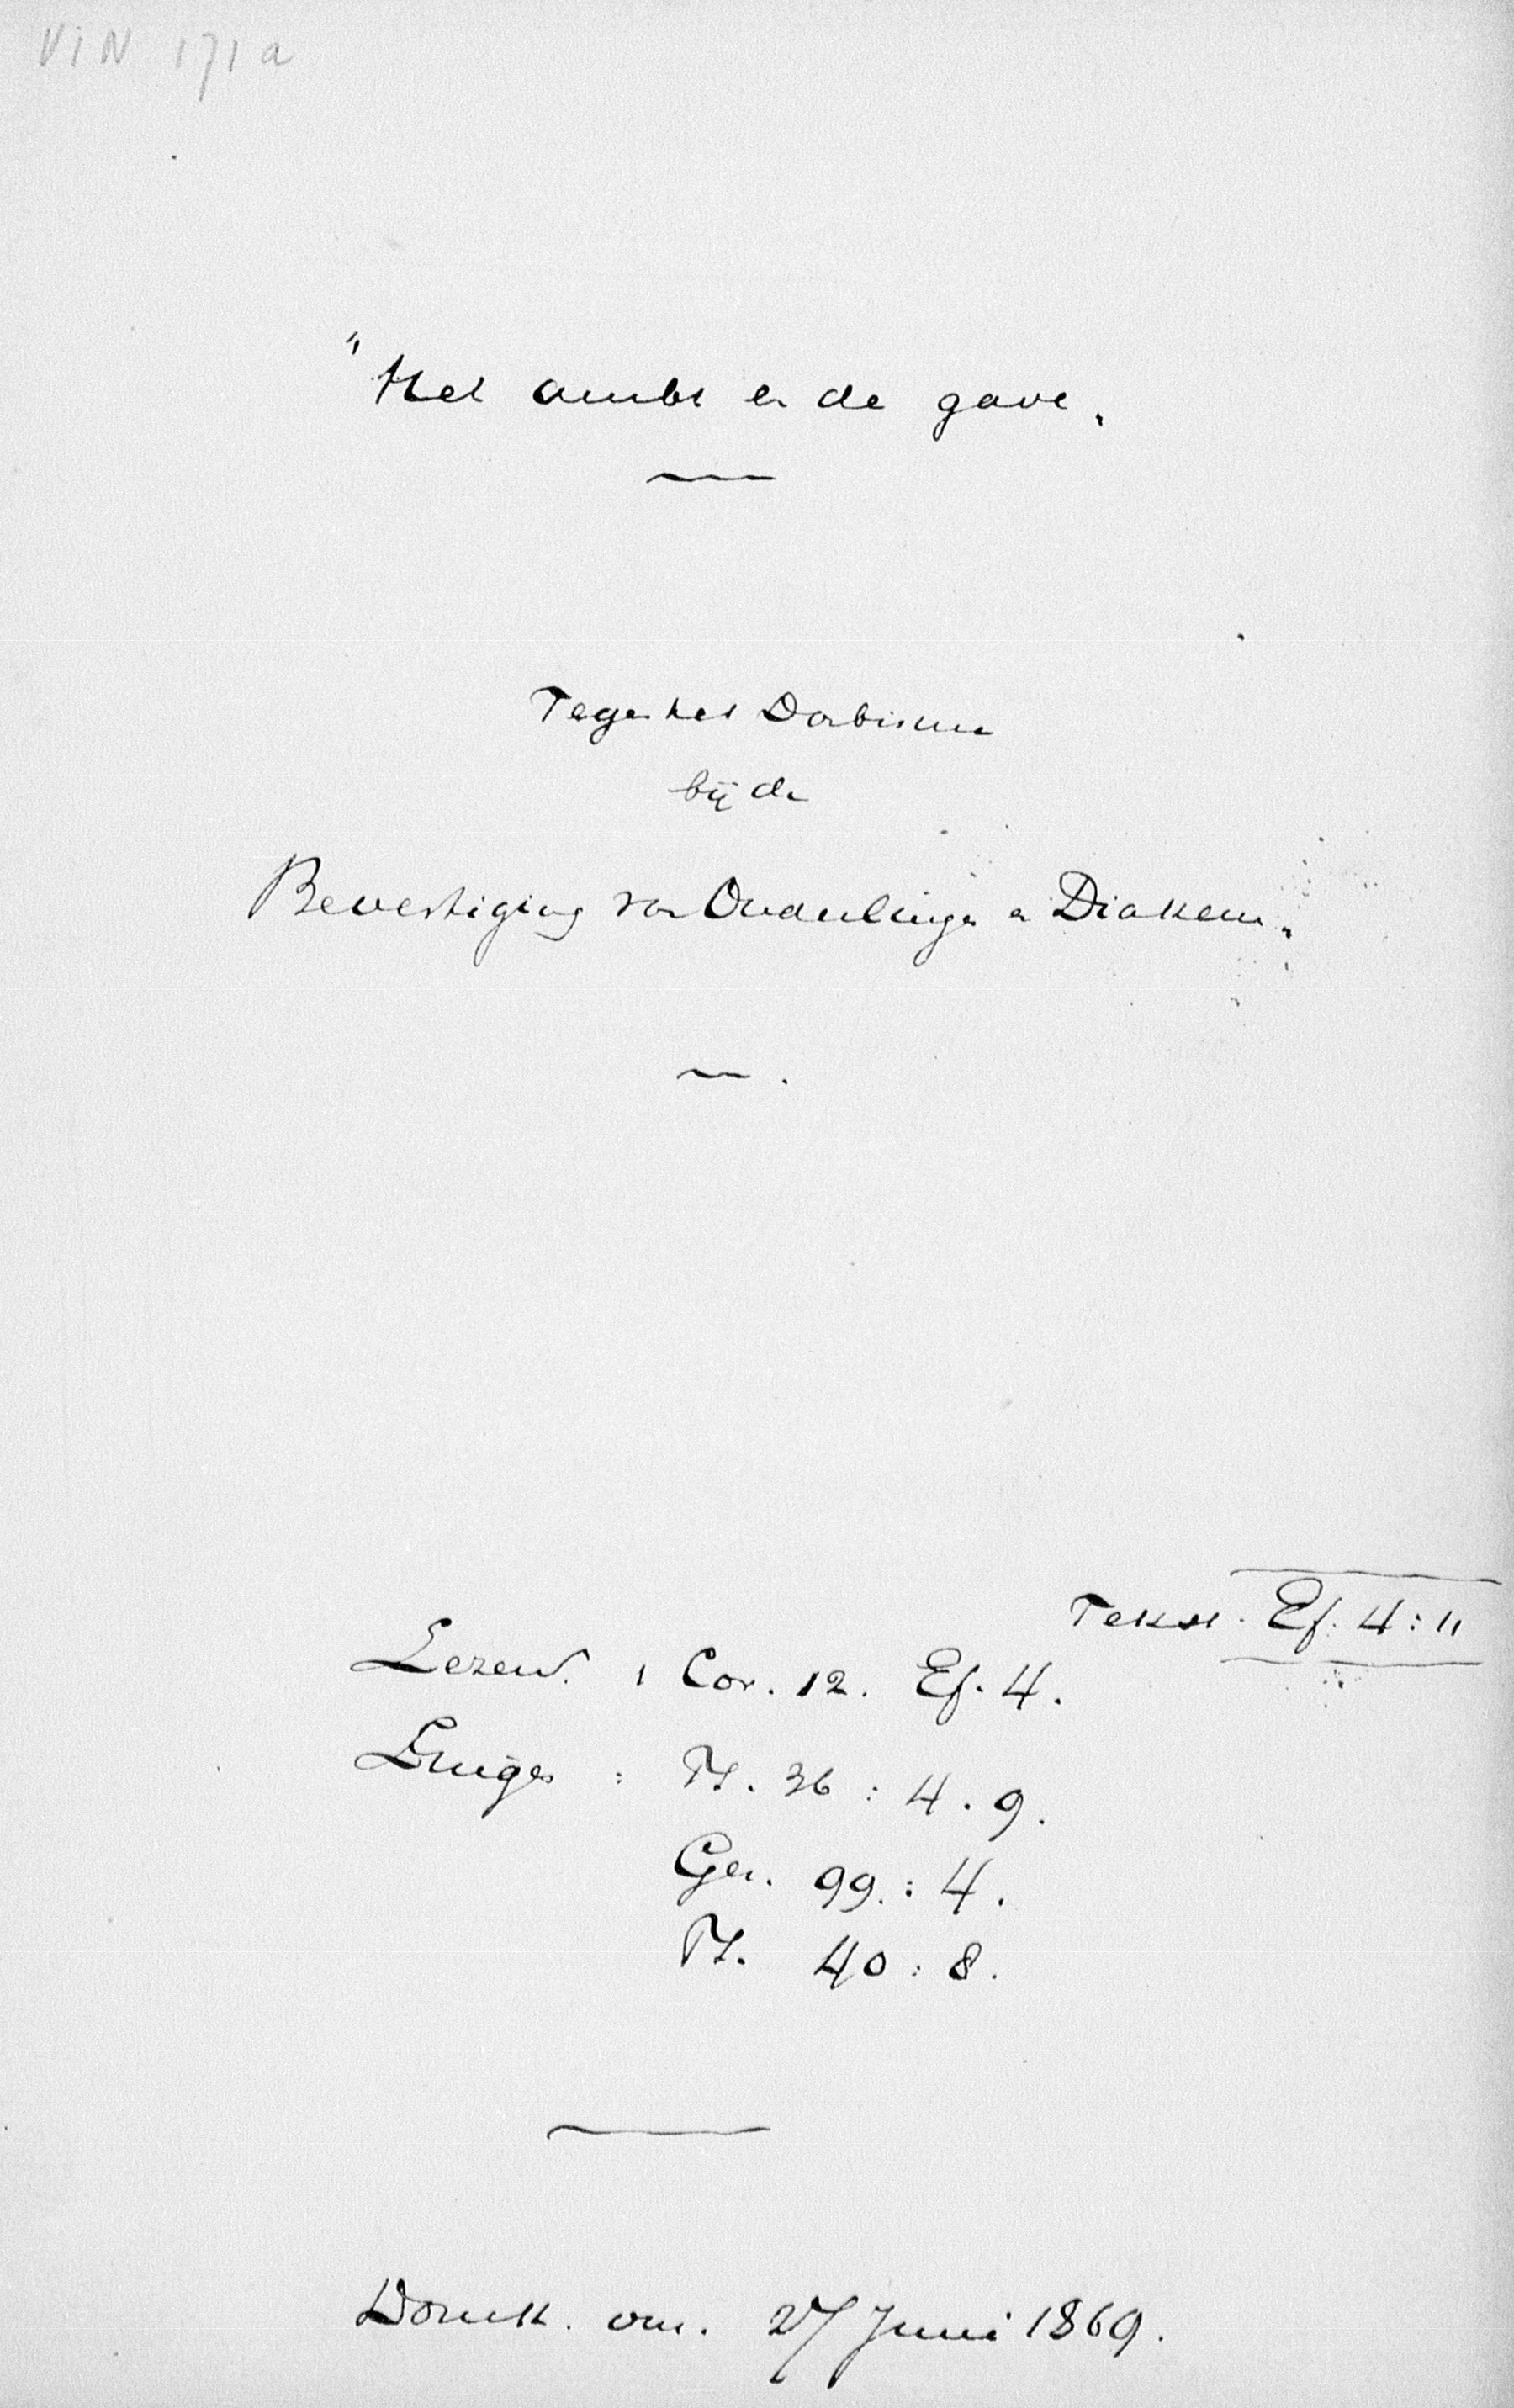 VIN 171a
"Het ambt en de gave.
Tegen het Darbisme
bij de
Bevestiging van Ouderlingen en Diakenen.
Tekst. Ef. 4:11
Lezen. 1 Cor. 12. Ef. 4.
Zingen : Ps. 36 : 4. 9.
Gez. 99. : 4.
Ps. 40 : 8.
Domk. vm. 27 Juni 1869.